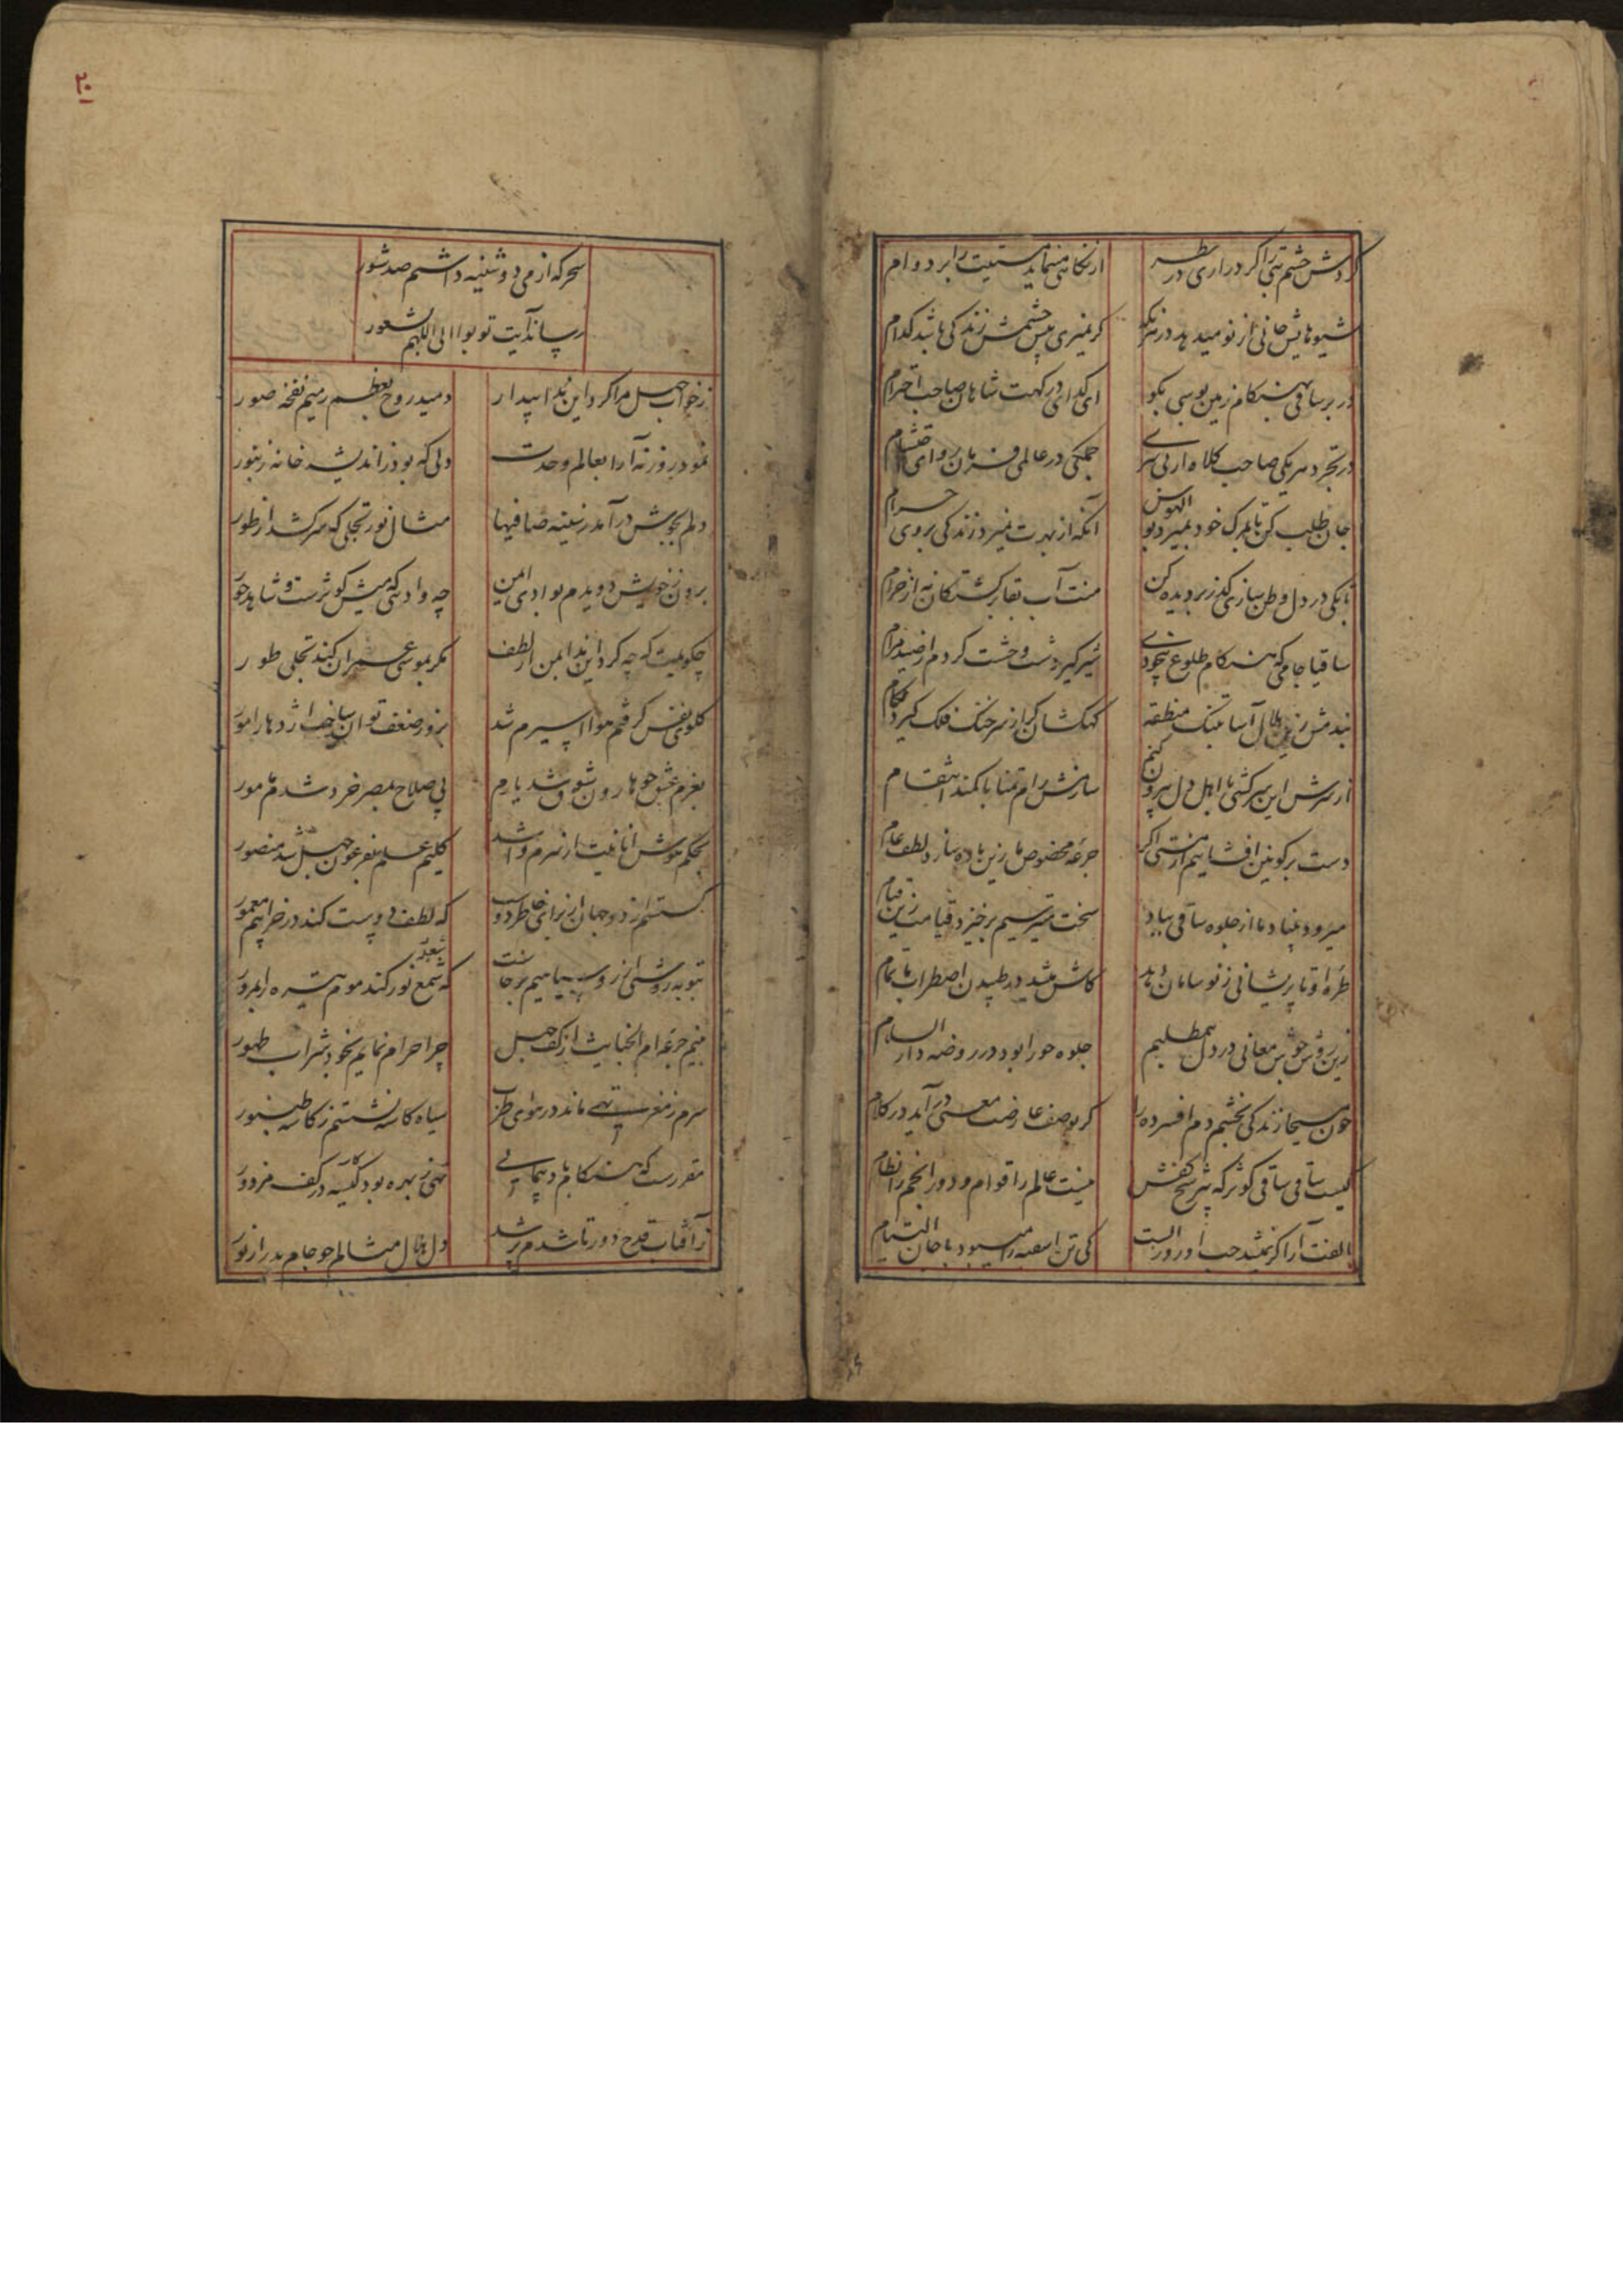 گردش چشم بتی را گر در آری در نظر
از نگاهی مینماید مستیت را بر دوام
شیوهایش جانی از نو میدهد در هر نگه
گر نمیری پیش چشمش زندگی باشد کدام
در بر ساقی بهنگام زمین بوسی بگو
ای گدای درگهت شاهان صاحب احترام
در تجرد هر یکی صاحب کلاه از بی سری
جملگی در عالمی فرمان روای
جان طلب کن تا بمرگ خود نمیرد بوالهوس
آنکه از بهرت نمیرد زندگی بر وی حرام
تا بکی در دل وطن سازی گذر بر دیده کن
منت آب بقا بر کشتگان نه از خرام
ساقیا جامی که هنگام طلوع بیخودی
شیرگیر دشت وحشت گردم از صید مرام
بندمش زین هلال آسا بتنگ منطقه
کهکشان گر از سر خنگ فلک گیرد لگام
از سرش این سرکشی با اهل دل بیرون کنم
سازمش رام تمنا با کمند انتقام
دست بر کونین افشانیم از مستی اگر
جرعه مخصوص ما زین باده سازد لطف عام
میرود بنیاد ما از جلوه ساقی بباد
سخت میترسیم برخیزد قیامت زین قیام
طره او تا پریشانی ز نو سامان دهد
کاش میشد در طپیدن اضطراب ما تمام
زین روش جوش معانی در دل
جلوه حورا بود در روضه دار السلام
چون مسیحا زندگی بخشم دم افسرده را
گر بوصف عارضت معنی درآید در کلام
کیست ساقی ساقی کوثر که شرح
نیست عالم را قوام و دور انجم را نظام
الفت آرا گر نمیشد حب او روز الست
کی تن میبود با جان التیام
۲۰
سحر که از می دوشینه داشتم صد شور
رساند آیت توبوا الی اللهم شعور
ز خواب جهل مرا کرد این ندا بیدار
دمید روح بعظم رمیم نفخه صور
نمود روزنه آرا بعالم وحدت
دلی که بود ز اندیشه خانه زنبور
دلم بجوش درآمد ز سینه صافیها
مثال نور تجلی که سر کشد از طور
برون ز خویش دویدم بوادی ایمن
چه وادئی که میش کوثرست و شاهد حور
چگویمت که چه کرد این ندا بمن از لطف
مگر بموسی عمران کند تجلی طور
گلوی نفس گرفتم هوا اسیرم شد
بزور ضعف توان ساخت اژدها را مور
بعزم عشق چو هارون شوق شد یارم
پی صلاح بمصر خرد شدم مامور
بحکم هوش انانیت از سرم وا شد
کلیم علم بفرعون جهل شد منصور
گسستم از دو جهان از برای خاطر دوست
که لطف دوست کند در خرابیم معمور
بتوبه روشنی از روسیاهیم برخاست
که شمع نور کند موم تیره را بمرور
منم جرعه ام الخبایث از کف جهل
چرا حرام نمایم بخود شراب طهور
سرم ز مغز تهی ماند در هوای طرب
سیاه کاسه نشستم ز کاسه طنبور
مقررست که هنگام باد پیمایی
تهی ز بهره بود کیسه در کف مزدور
ز آفتاب قدح دور تا شدم پر شد
دل هلال مثالم چو جام بدر از نور